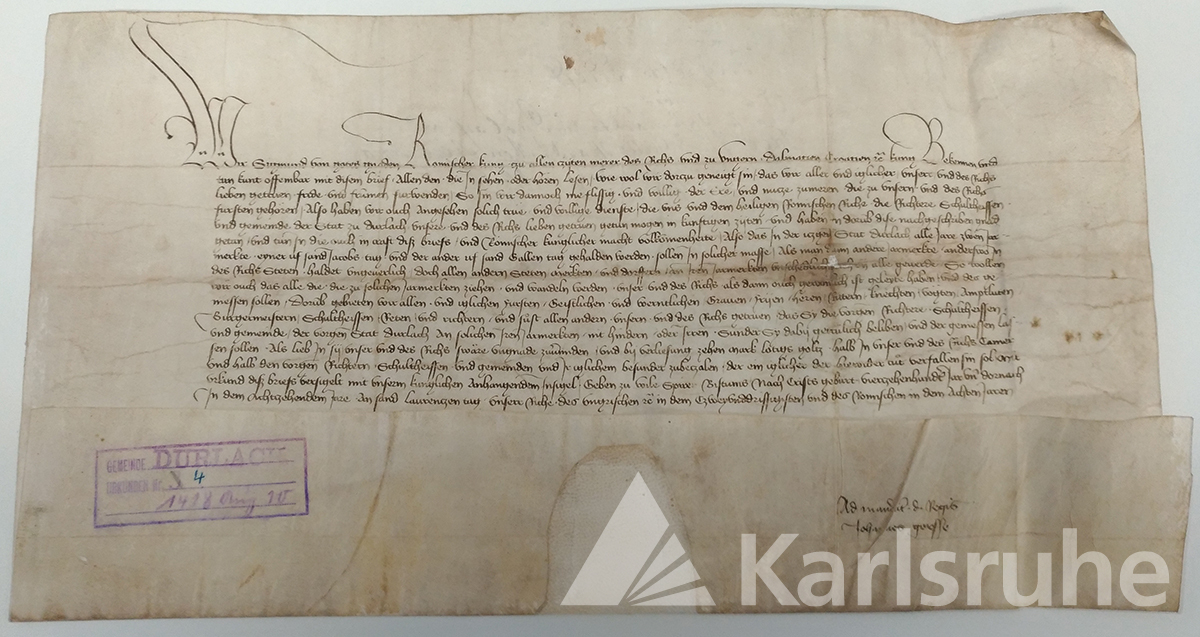 Wir Sigmund von gotes gnaden Romischer kung zu allen zyten merer des Richs und zu Ungern Dalmatien Croatien ⁊c̄ kung Bekennen und
tun kunt offembar mit disem brief Allen den die In sehen oder horen lesen, wie wol wir dorzu geneigt sin, das wir aller und iglicher unserr und des Richs
lieben getruen frede und furwenden, So sin wir dannoch me flissig und willig der Ere, und nucze zumeren die zu unsern und des Richs
fursten gehoren, Also haben wir ouch Angesehen solich true und willige dienste, die uns und dem heiligen Romischen Riche die Richtere Schultheissen
und gemeinde der Stat zu Durlach unsere und des Richs lieben getruen getun mogen in kunftigen zyten, und haben in dorub dise nachgeschriben gnad
getan, und tun in die ouch in craft diß briefs, und Romischer kunglicher macht volkomenheite, Also das in der iczgen Stat Durlach alle Jare zwen jar
merkte, eyner uf sand Jacobs tag und der ander uf sand Gallen tag gehalden werden sollen in solicher masse, Als man dann andere jarmerkte anderswo in
des Richs Steten haldet ungeverlich, doch allen andern Steten merkten und dorffern an iren jarmerkten alle geverde. So wollen
wir ouch das alle die, die zu solichen jarmerkten ziehen und wandeln werden, unser und des Richs als dann ouch gewonlich ist geleyte haben, und des ge
niessen sollen, Dorub gebieten wir allen und iglichen fursten, Geistlichen und werntlichen Grauen, fryen, heren Rittern, knechten, vogten, Amptluten
Burgermeistern Schultheissen Reten, und richtern, und sust allen andern unsern und des Richs getruen, das Sy die vorgen Richtere Schultheissen
und gemeinde, der vorgen Stat Durlach An solichen iren jarmerkten nit hindern oder irren Sunder Sy daby gerulich beliben, und der geniessen las
sen sollen, Als lieb In sij unser und des Richs swere ungnade zuuermiden, und by verliesung zehen mark lotigs goltz, halb in unser und des Richs Camer
und halb den vorgen Richtern, Schultheissen und gemeinden und ir iglichem besunder zubezalen, der ein iglicher der hierwider tut verfallen sin sol Mit
urkund diß briefs versigelt mit unserm kunglichen Anhangendem Insigel, Geben zu Wile Spirer Bistums Nach Crists geburt vierzehenhundert jar und dornach
In dem Achtzehendem Jare An sand Laurenczen tag, unserr Riche des ungrischen ⁊c̄ in dem Czweyunddrissigisten und des Romischen in dem Achten jaren
Ad mandat. d. Regis
Johannes
GEMEINDE DURLACH
URKUNDEN Nr. 4
1418 Aug 10
Karlsruhe